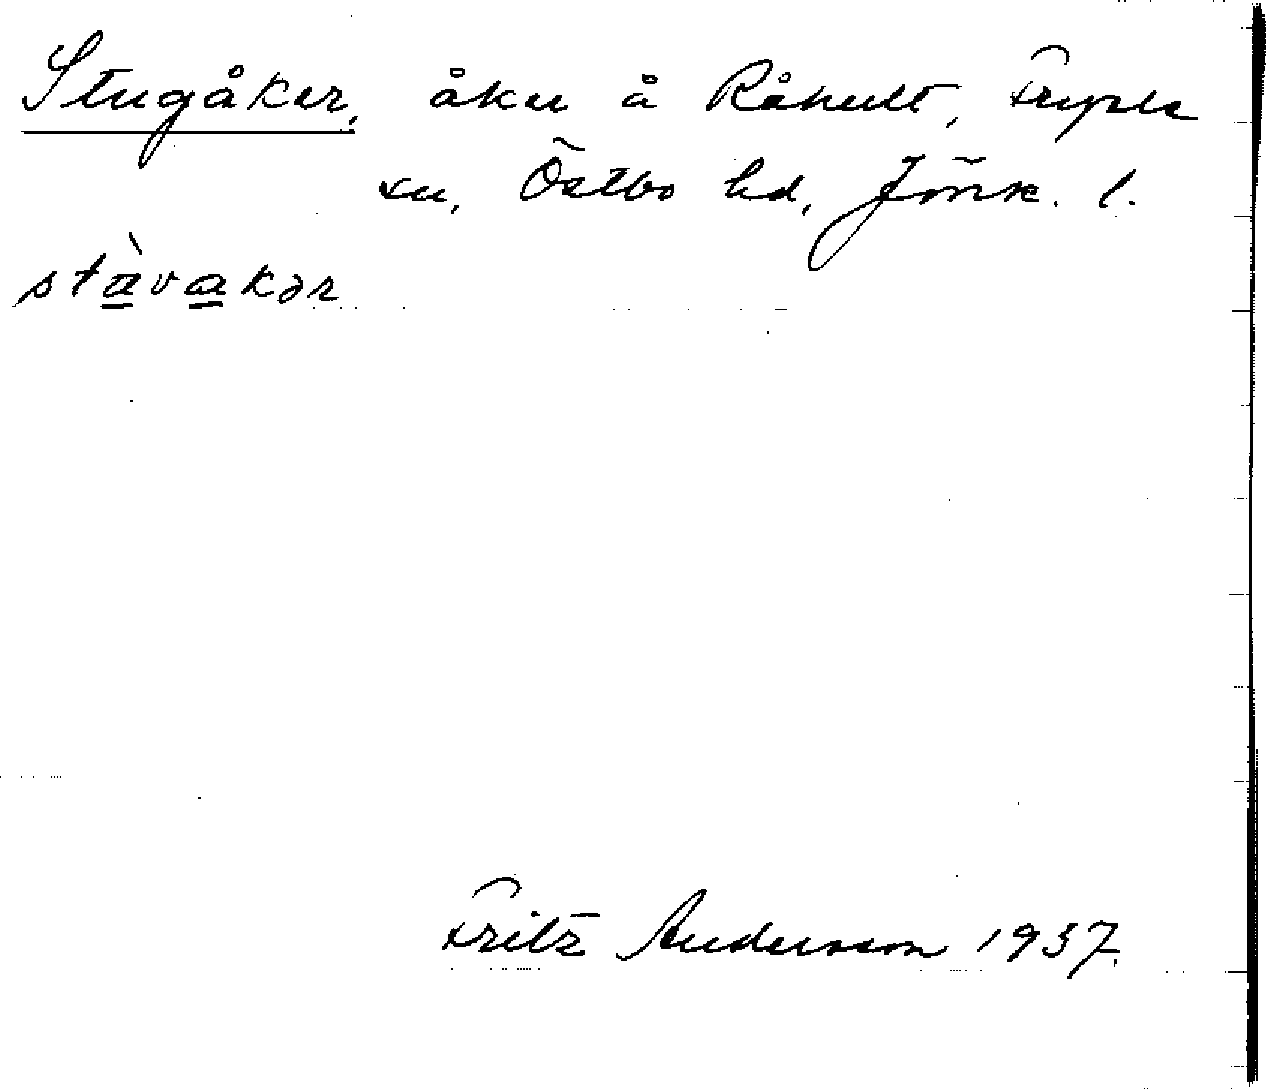 Stugåker, åker å Råhult, Fryele
sn, Östbo hd, Jönk. l.
stàvakər
Fritz Anderson 1937.